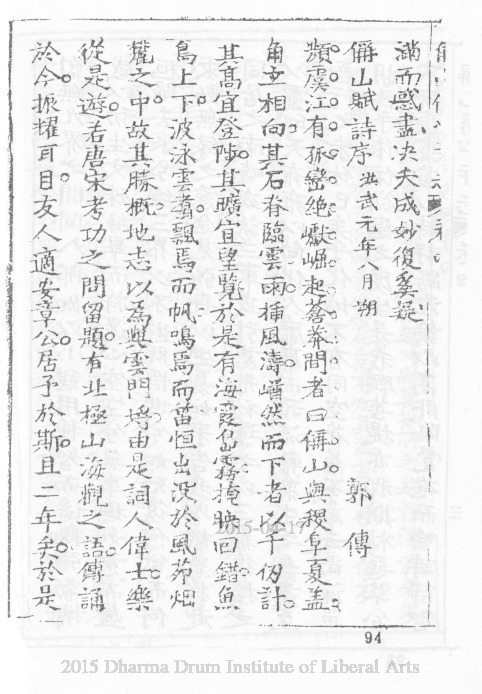 滿而惑盡決夫成妙復奚疑
偋山賦詩序 洪武元年八月朔 郭傳
瀕虞江有孤巒絕巘崛起蒼莽間者曰偋山與稷阜夏蓋
角立相向其石脊臨雲雨揷風濤嶓然而下者以千仞計
其高宜登陟其曠宜望覽於是有海霞島霧掩映回錯魚
鳥上下波泳雲翥飄焉而帆鳴焉而笛恒出沒於風茆烟
之中故其勝概地志以為與雲門埒由是詞人偉士樂
從是遊若唐宋考功之問留題有北極山海觀之語傳誦
於今振耀耳目友人適安章公居予於斯且二年矣於是
94
2015-04-17
2015 Dharma Drum Institute of Liberal Arts